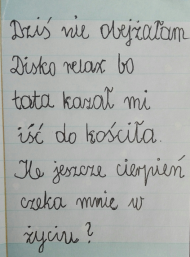 Dziś nie obejżałam
Disko relax bo
tata kazał mi
iść do kościła.
Ile jeszcze cierpień
czeka mnie w
życiu?